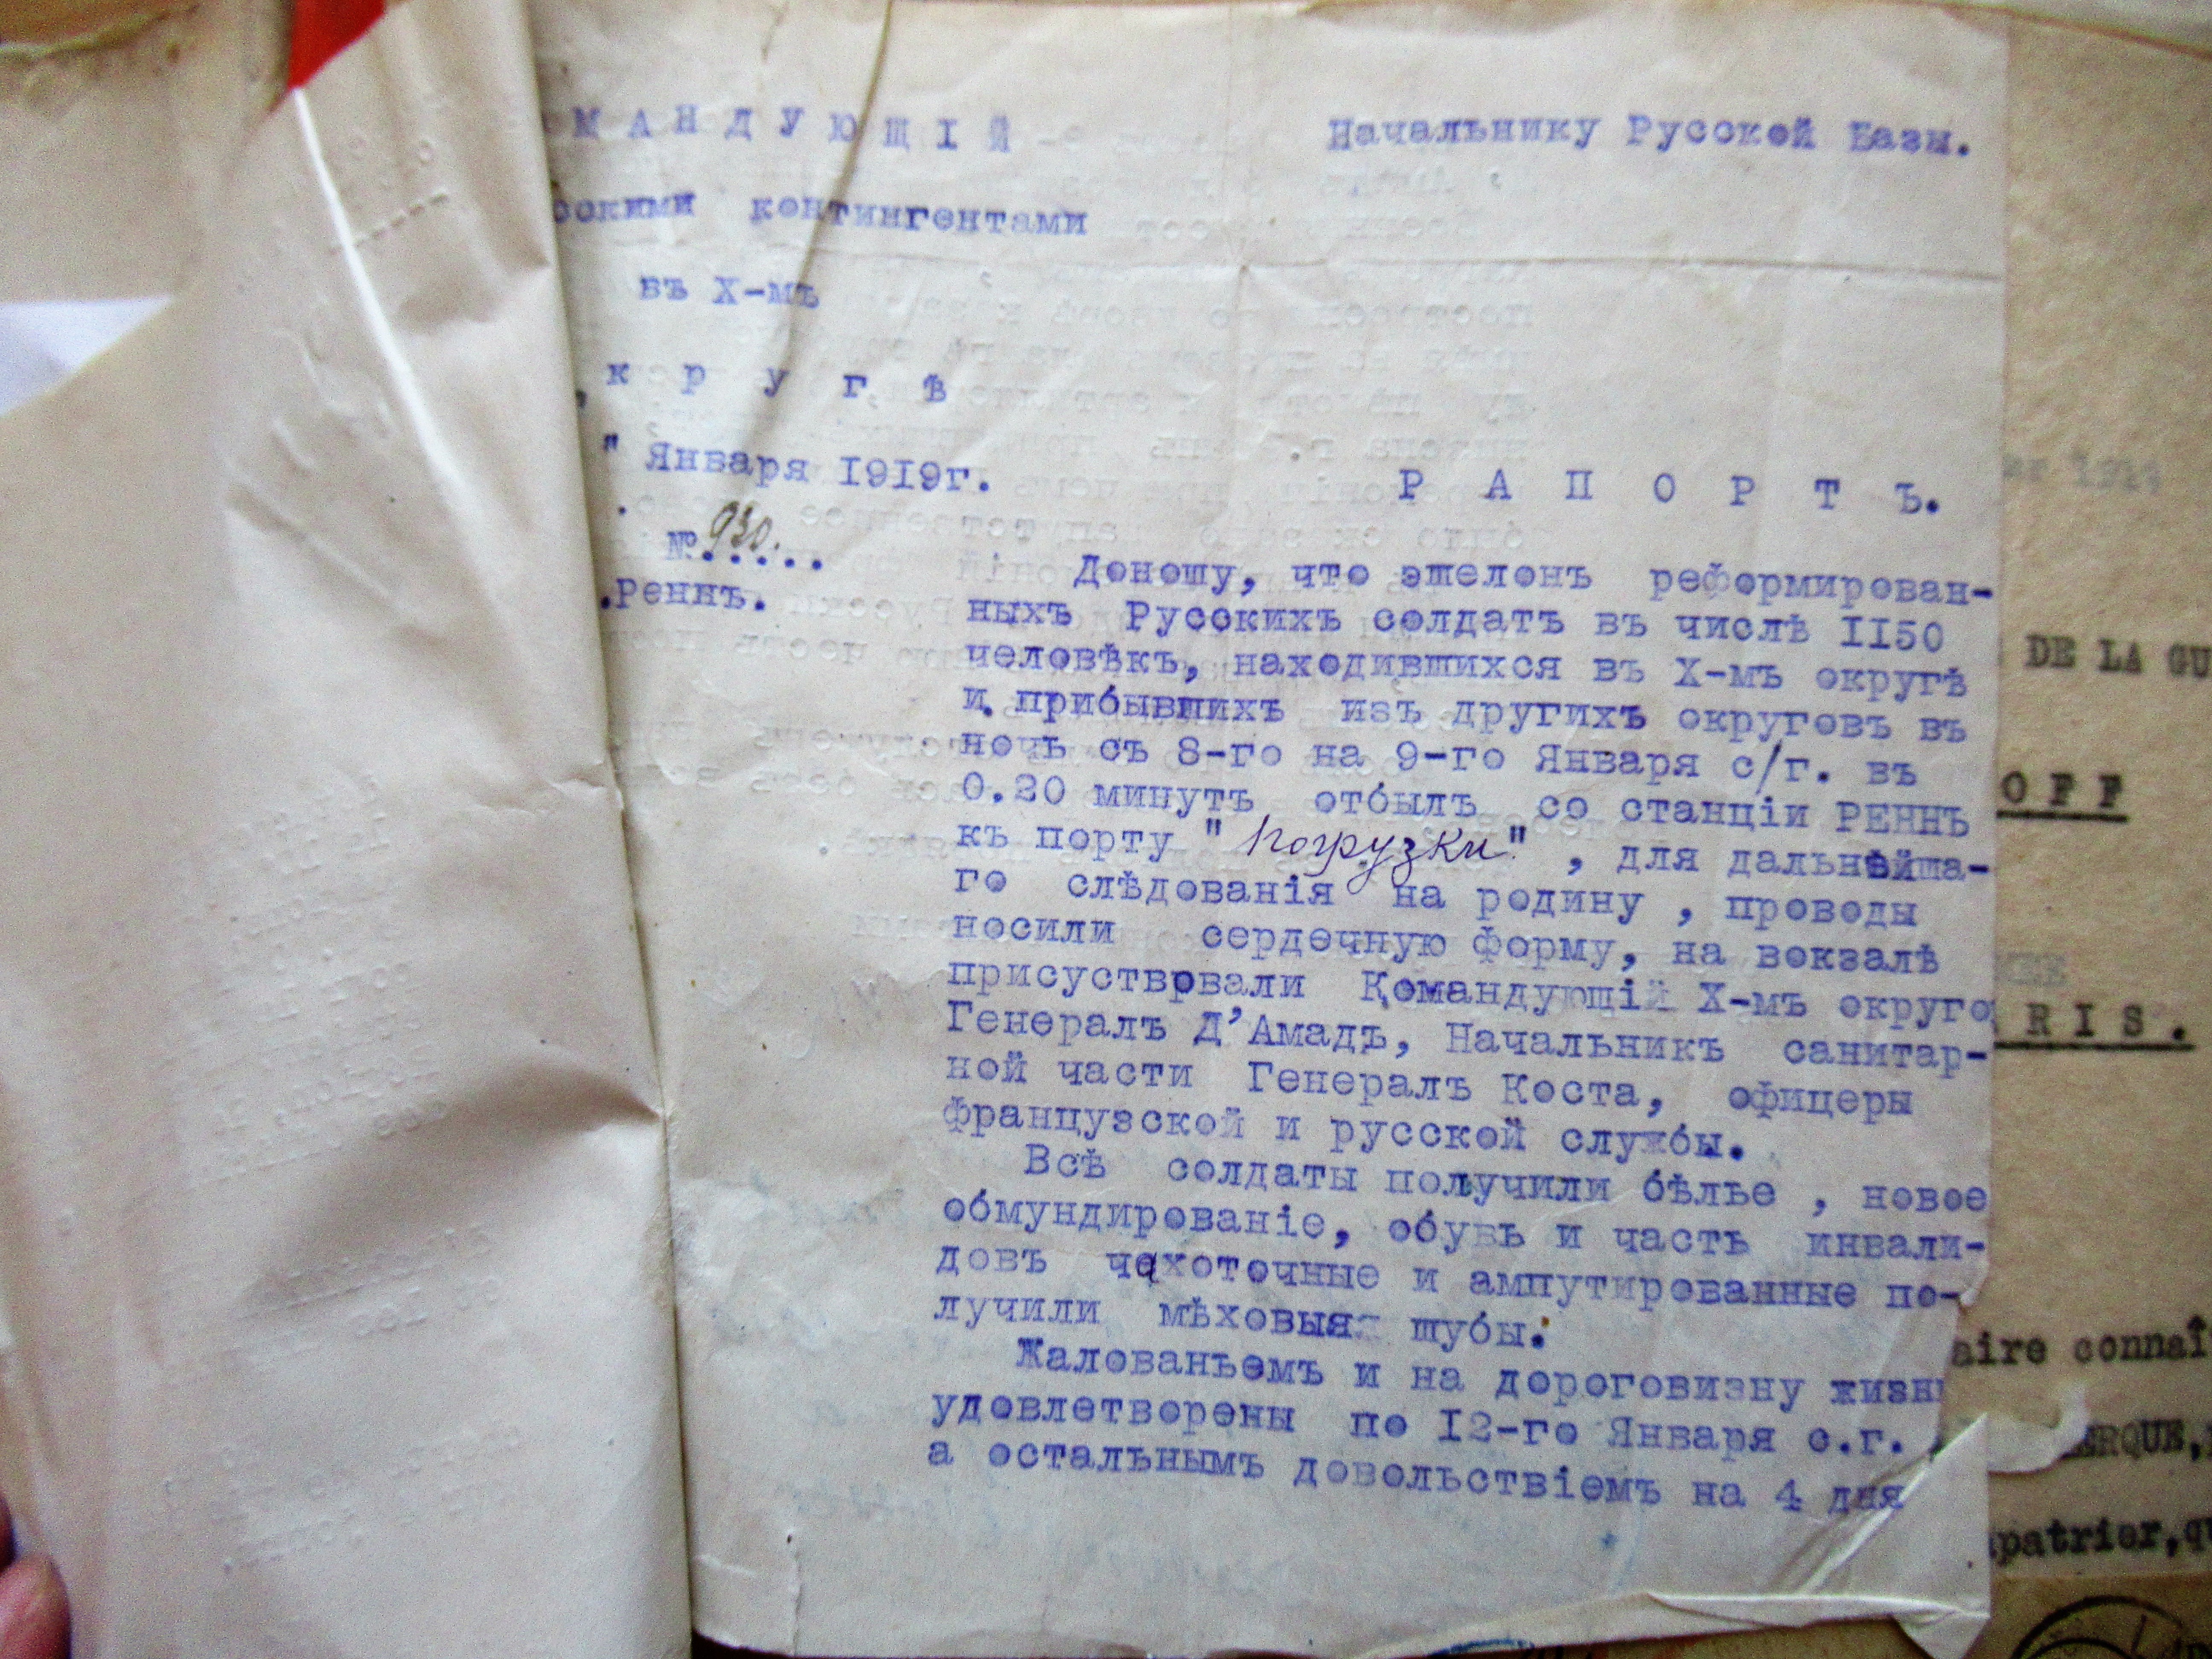 МАНДУЮЩІЙ
Начальнику Русской Базы.
скими контингентами
въ X-мъ
кругѣ
" Января 1919г.
РАПОРТЪ.
№ 930.....
.Реннъ.
Доношу, что эшелонъ реформирован-
ныхъ Русскихъ солдатъ въ числѣ II50
человѣкъ, находившихся въ X-мъ округѣ
и прибывшихъ изъ другихъ округовъ въ
ночь съ 8-го на 9-го Января с/г. въ
0.20 минутъ отбылъ со станціи РЕННЪ
къ порту "погрузки" , для дальнѣйша-
го слѣдованія на родину , проводы
носили сердечную форму, на вокзалѣ
присуствовали Командующій X-мъ округо
Генералъ Д'Амадъ, Начальникъ санитар-
ной части Генералъ Коста, офицеры
французской и русской службы.
Всѣ солдаты получили бѣлье , новое
обмундированіе, обувь и часть инвали-
довъ чахоточные и ампутированные по-
лучили мѣховыя шубы.
Жалованьемъ и на дороговизну жизни
удовлетворены по I2-го Января с.г. ,
а остальнымъ довольствіемъ на 4 дня
DE LA GU
OFF
RIS.
aire connaî
ERQUE,
patrier,qu